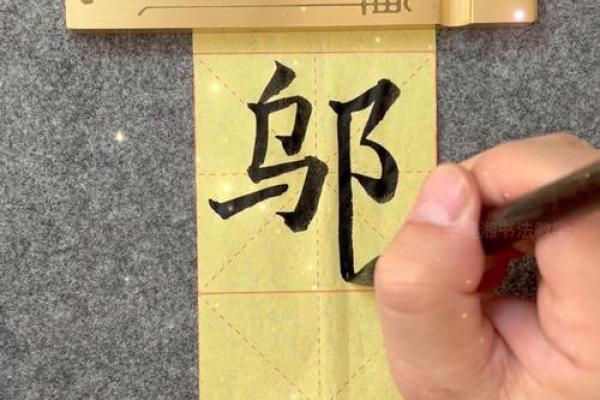 邬
书法教学